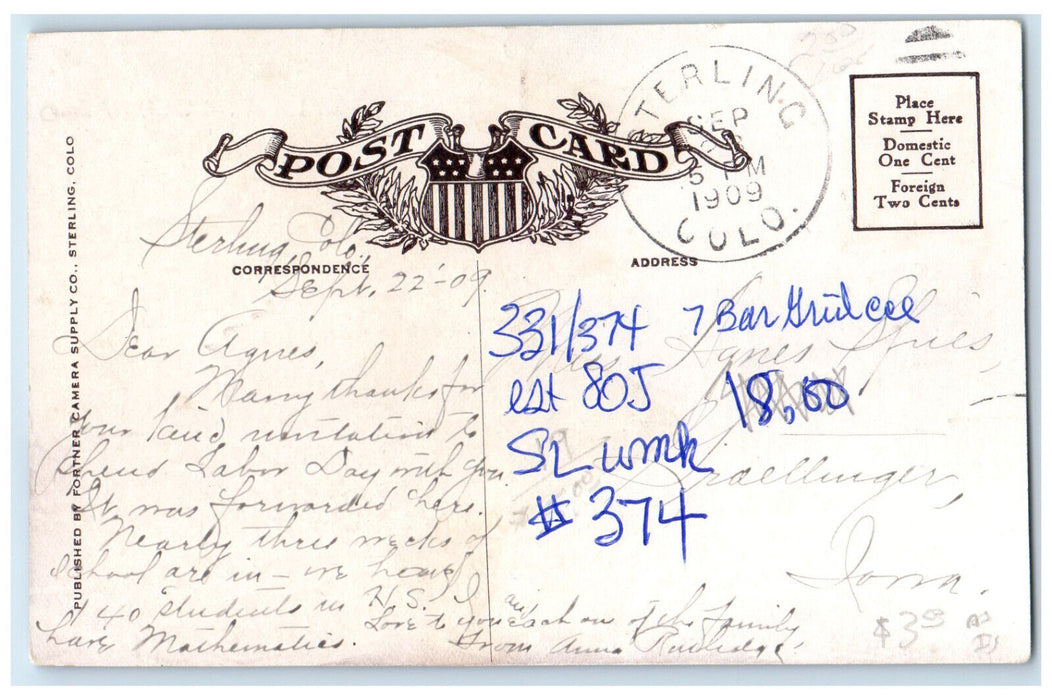 POST CARD
STERLING
SEP
5 PM
1909
COLO.
Place
Stamp Here
Domestic
One Cent
Foreign
Two Cents
PUBLISHED BY FORTNER CAMERA SUPPLY CO., STERLING, COLO
CORRESPONDENCE
ADDRESS
Sterling Colo.,
Sept. 22-'09.
Dear Agnes,
Many thanks for
your kind invitation to
spend Labor Day with you.
It was forwarded here.
Nearly three weeks of
school are in - we have
140 students in H.S. I
have Mathematics.
Love to you an' each one of the family
From Anna Rutledge.
Miss Agnes Spies,
Graettinger,
Iowa.
331/374 7 Bar Grid ccl
est 80J 18,00
SL wmk
# 374
$3.00